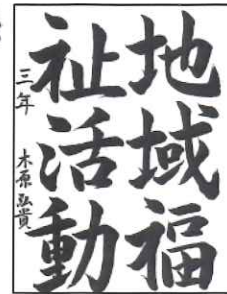 地域福
祉活動
三年 木原弘貴